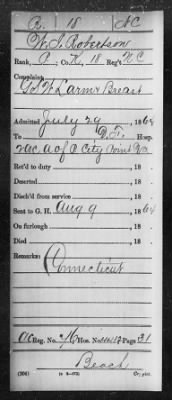 R. 18 N C
W. S. Robertson
Rank, P ; Co. K, 18 Reg't N C
Complaint,
G S W L arm & Breast
Admitted July 29, 1864
To D. F. Hosp.
2 A C A of P City Point Va
Ret'd to duty , 18 .
Deserted , 18 .
Disch'd from service , 18 .
Sent to G. H. Aug 9 , 1864
On furlough , 18 .
Died , 18 .
Remarks:
Connecticut
Reg. No. 46 Hos. No. Page 31
Beach
Copyist.